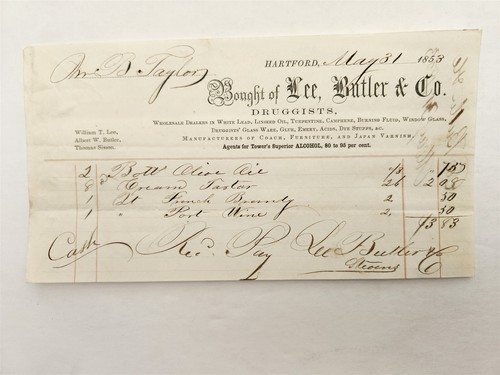 HARTFORD, May 31 1853
Mr. B. Taylor
Bought of Lee, Butler & Co.
DRUGGISTS,
WHOLESALE DEALERS IN WHITE LEAD, LINSEED OIL, TURPENTINE, CAMPHENE, BURNING FLUID, WINDOW GLASS,
DRUGGISTS' GLASS WARE, GLUE, EMERY, ACIDS, DYE STUFFS, &C.
MANUFACTURERS OF COACH, FURNITURE, AND JAPAN VARNISH.
Agents for Tower's Superior ALCOHOL, 80 to 95 per cent.
William T. Lee,
Albert W. Butler,
Thomas Sisson.
2 Bott Olive Oil 75
8 Cream Tartar 26 2 08
1 Qt French Brandy 2, 50
1 " Port Wine 2, 50
3 83
Cash Recd. Pay Lee Butler & Co
Stevens